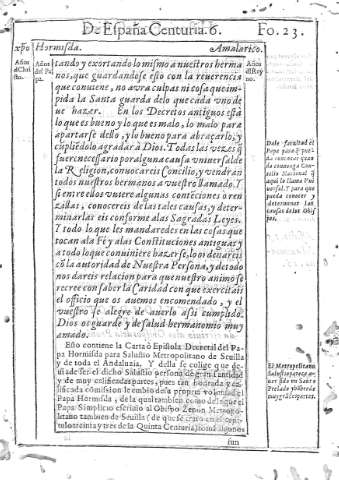 De España Centuria. 6.
Fo. 23.
xpo Hormisda. Amalarico.
Años d Christo. Años del Papa. Años del Rey
tando y exortando lo mismo a nuestros herma
nos, que guardandose esto con la reuerencia
que conuiene, no aura culpas ni cosa que im-
pida la Santa guarda delo que cada vno de
ue hazer. En los Decretos antiguos està
lo que es bueno y lo que es malo, lo malo para
apartarse dello, y lo bueno para abraçarlo, y
cūpliēdolo agradar à Dios. Todas las vezes q̄
fuere necessario por alguna causa vniuersal de
la Religion, conuocareis Concilio, y vendran
todos nuestros hermanos a vuestro llamado. Y
si entre ellos vuiere algunas contēciones ò ren
zillas, conocereis de las tales causas, y deter
minarlas eis conforme alas Sagradas Leyes.
Y todo lo que les mandaredes en las cosas que
tocan ala Fè y alas Constituciones antiguas y
a todo lo que conuiniere hazerse, lo ordenareis
cō la autoridad de Nuestra Persona, y de todo
nos dareis relacion para que nuestro animo se
recree con saber la Caridad con que exercitais
el officio que os auemos encomendado, y el
vuestro se alegre de auerlo assi cumplido.
Dios os guarde y de salud hermano mio muy
amado.
Dale facultad el
Papa para q̄
pueda conocer quan
do conuenga Con
cilio Nacional q̄
aqui lo llama Vni
uersal. Y para que
pueda conocer y
determinar las
causas de los Obis
pos.
Esto contiene la Carta ò Epistola Decretal del Pa
pa Hormisda para Salustio Metropolitano de Seuilla
y de toda el Andaluzia. Y della se colige que de-
uia de ser el dicho Salustio persona de gran santidad
y de muy calificadas partes, pues tan honrada y ca
lificada comission le embiò de su propria voluntad el
Papa Hormisda, de la qual tambien como de la que el
Papa Simplicio escriuio al Obispo Zenon Metropo-
litano tambien de Seuilla (de que se trato en el cap.
treinta y tres de la Quinta Centuria) toman algunos
El Metropolitano
Salustio parece a-
uer sido vn Santo
Prelado y de
muy grādes partes.
fun